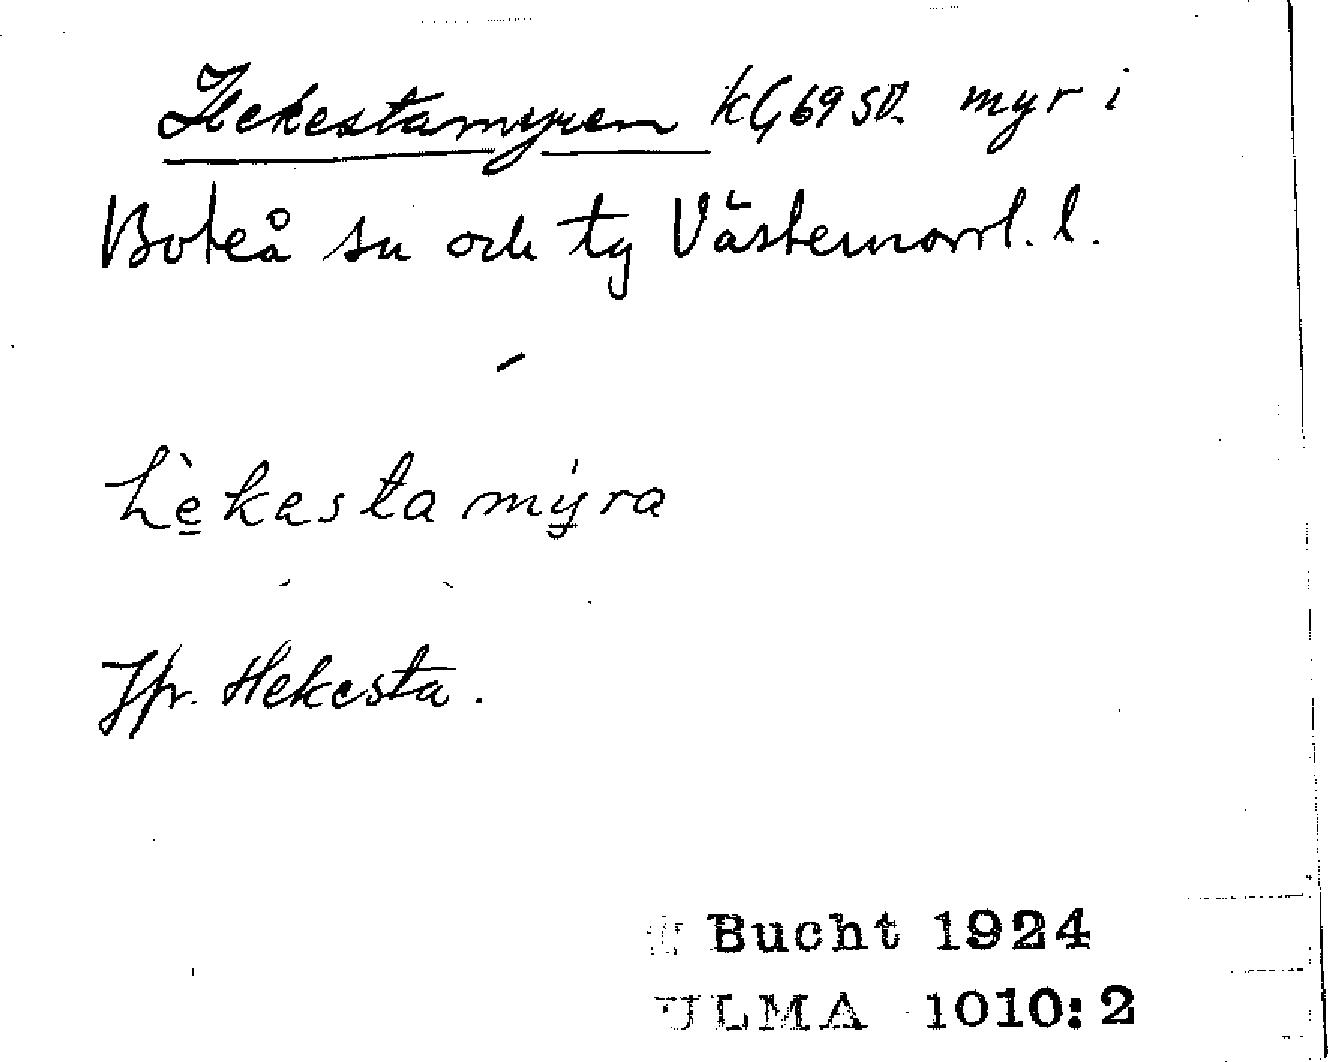 Hekestamyren kG69SV. myr i
Boteå sn och tg Västernorrl. l.
hèkasta mýra
Jfr. Hekesta.
T Bucht 1924
ULMA 1010:2